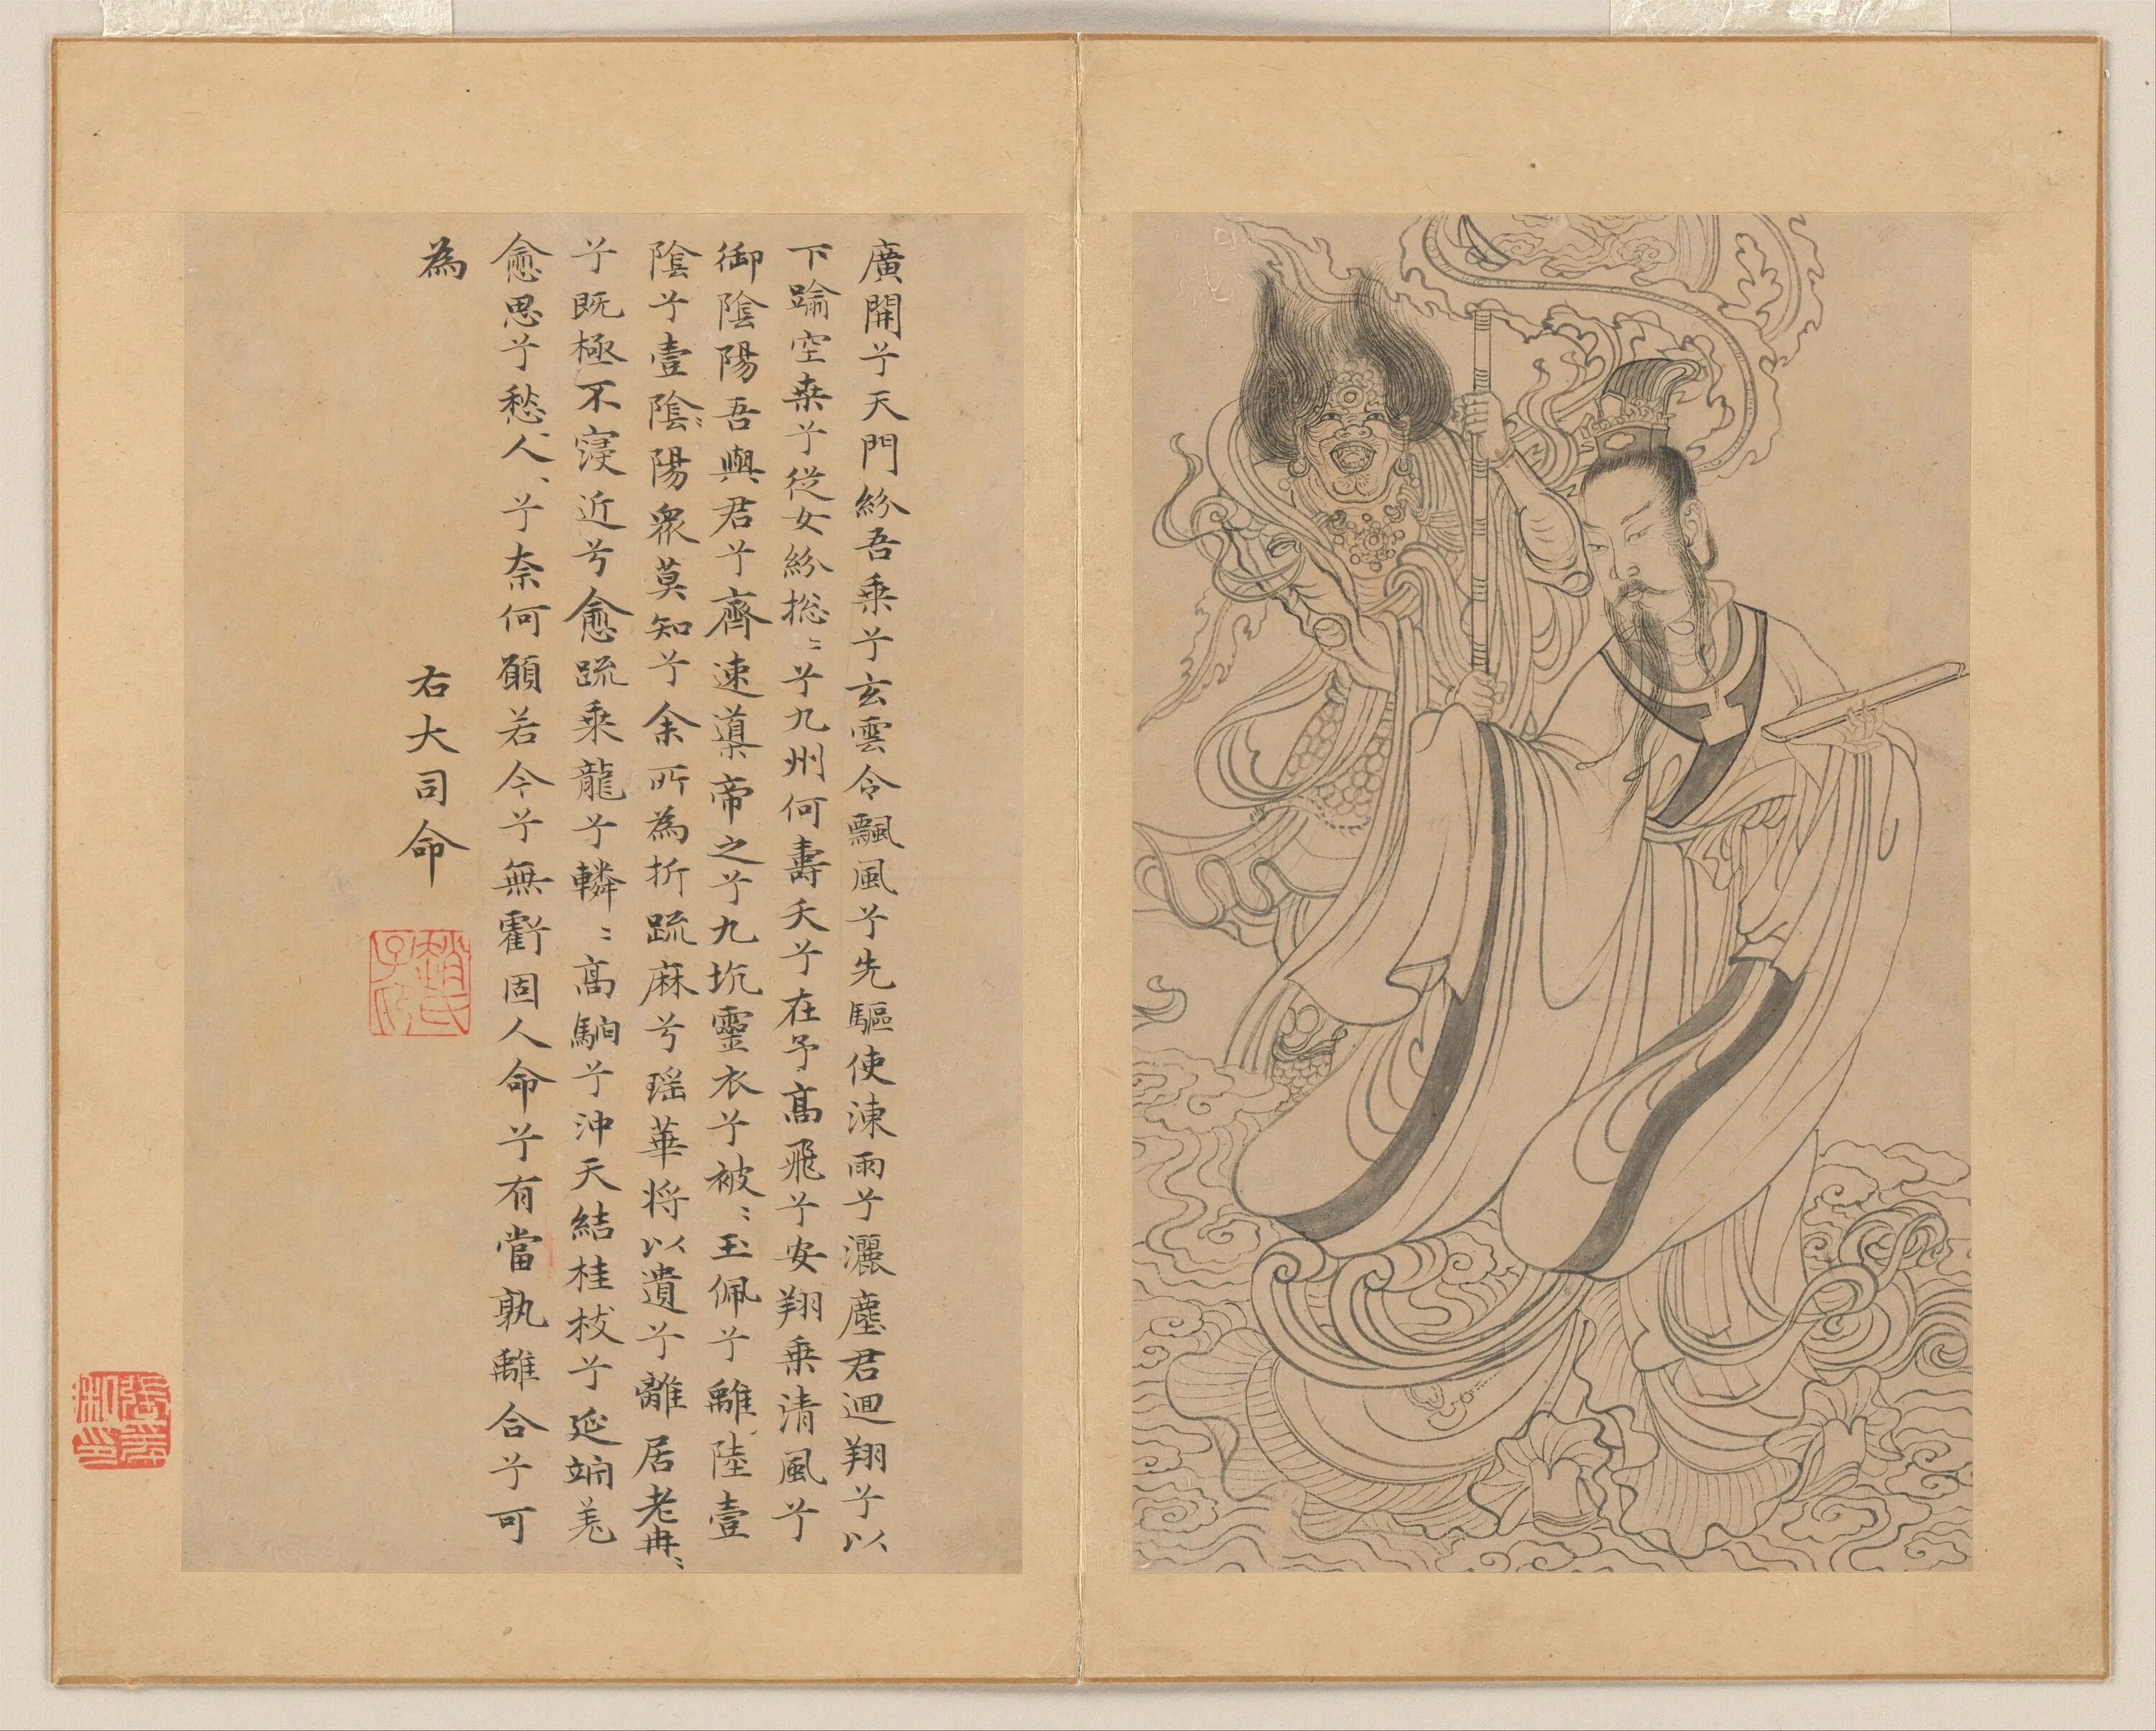 廣開兮天門紛吾乗兮玄雲令飄風兮先驅使涷雨兮灑塵君迴翔兮以
下踰空桒兮従女紛捴〻兮九州何壽夭兮在予高飛兮安翔乗清風兮
御陰陽吾與君兮齊速導帝之兮九坑靈衣兮被〻玉佩兮離陸壹
陰兮壹陰〻陽衆莫知兮余所為折䟽麻兮瑶華将以遺兮離居老冉〻
兮既極不寖近兮愈䟽乗龍兮轔〻高駒兮沖天結桂枝兮延竚羌
愈思兮愁人〻兮奈何願若今兮無虧固人命兮有當孰離合兮可
為
右大司命
趙氏子昂